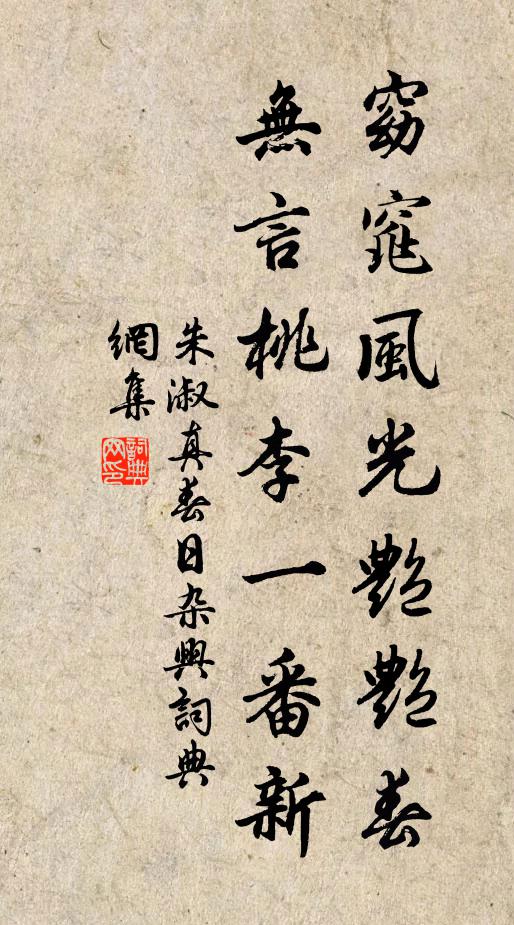 窈窕風光艷艷春
無言桃李一番新
朱淑真春日杂興詞典
網集
詞典
网印